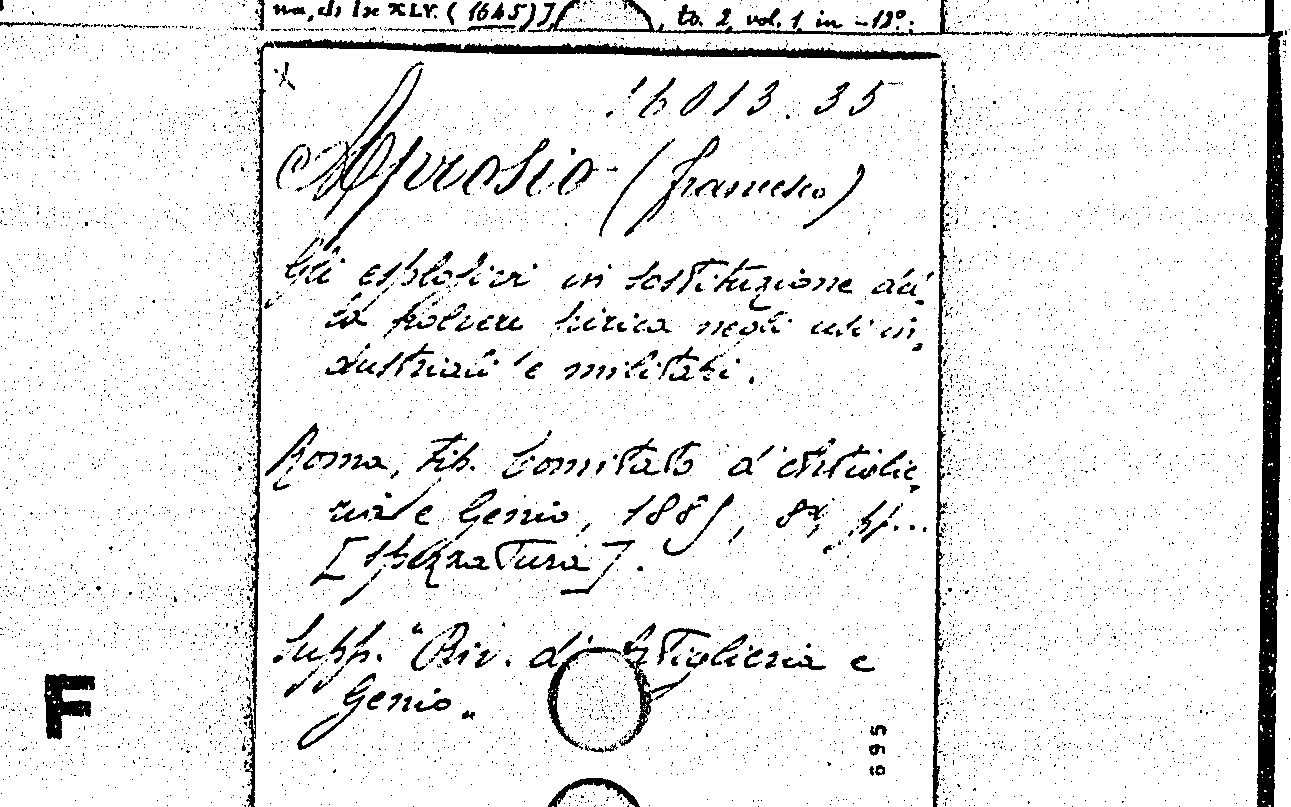 na, ch Ise XLV. (1645)], to. 2, vol. 1 in -12°.
16013.35
Aprosio (francesco)
Gli esplosivi in sostituzione del,
la polvere pirica negli usi in,
dustriali e militari.
Roma, Tip. Comitato d'Artiglie,
ria e Genio, 1885, 8°, pp...
[spezzatura].
Supp. "Riv. di Artiglieria e
Genio„
F
695